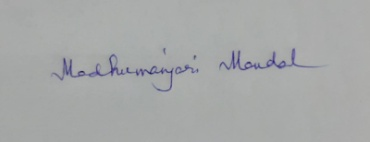 Madhumanjari Mandal